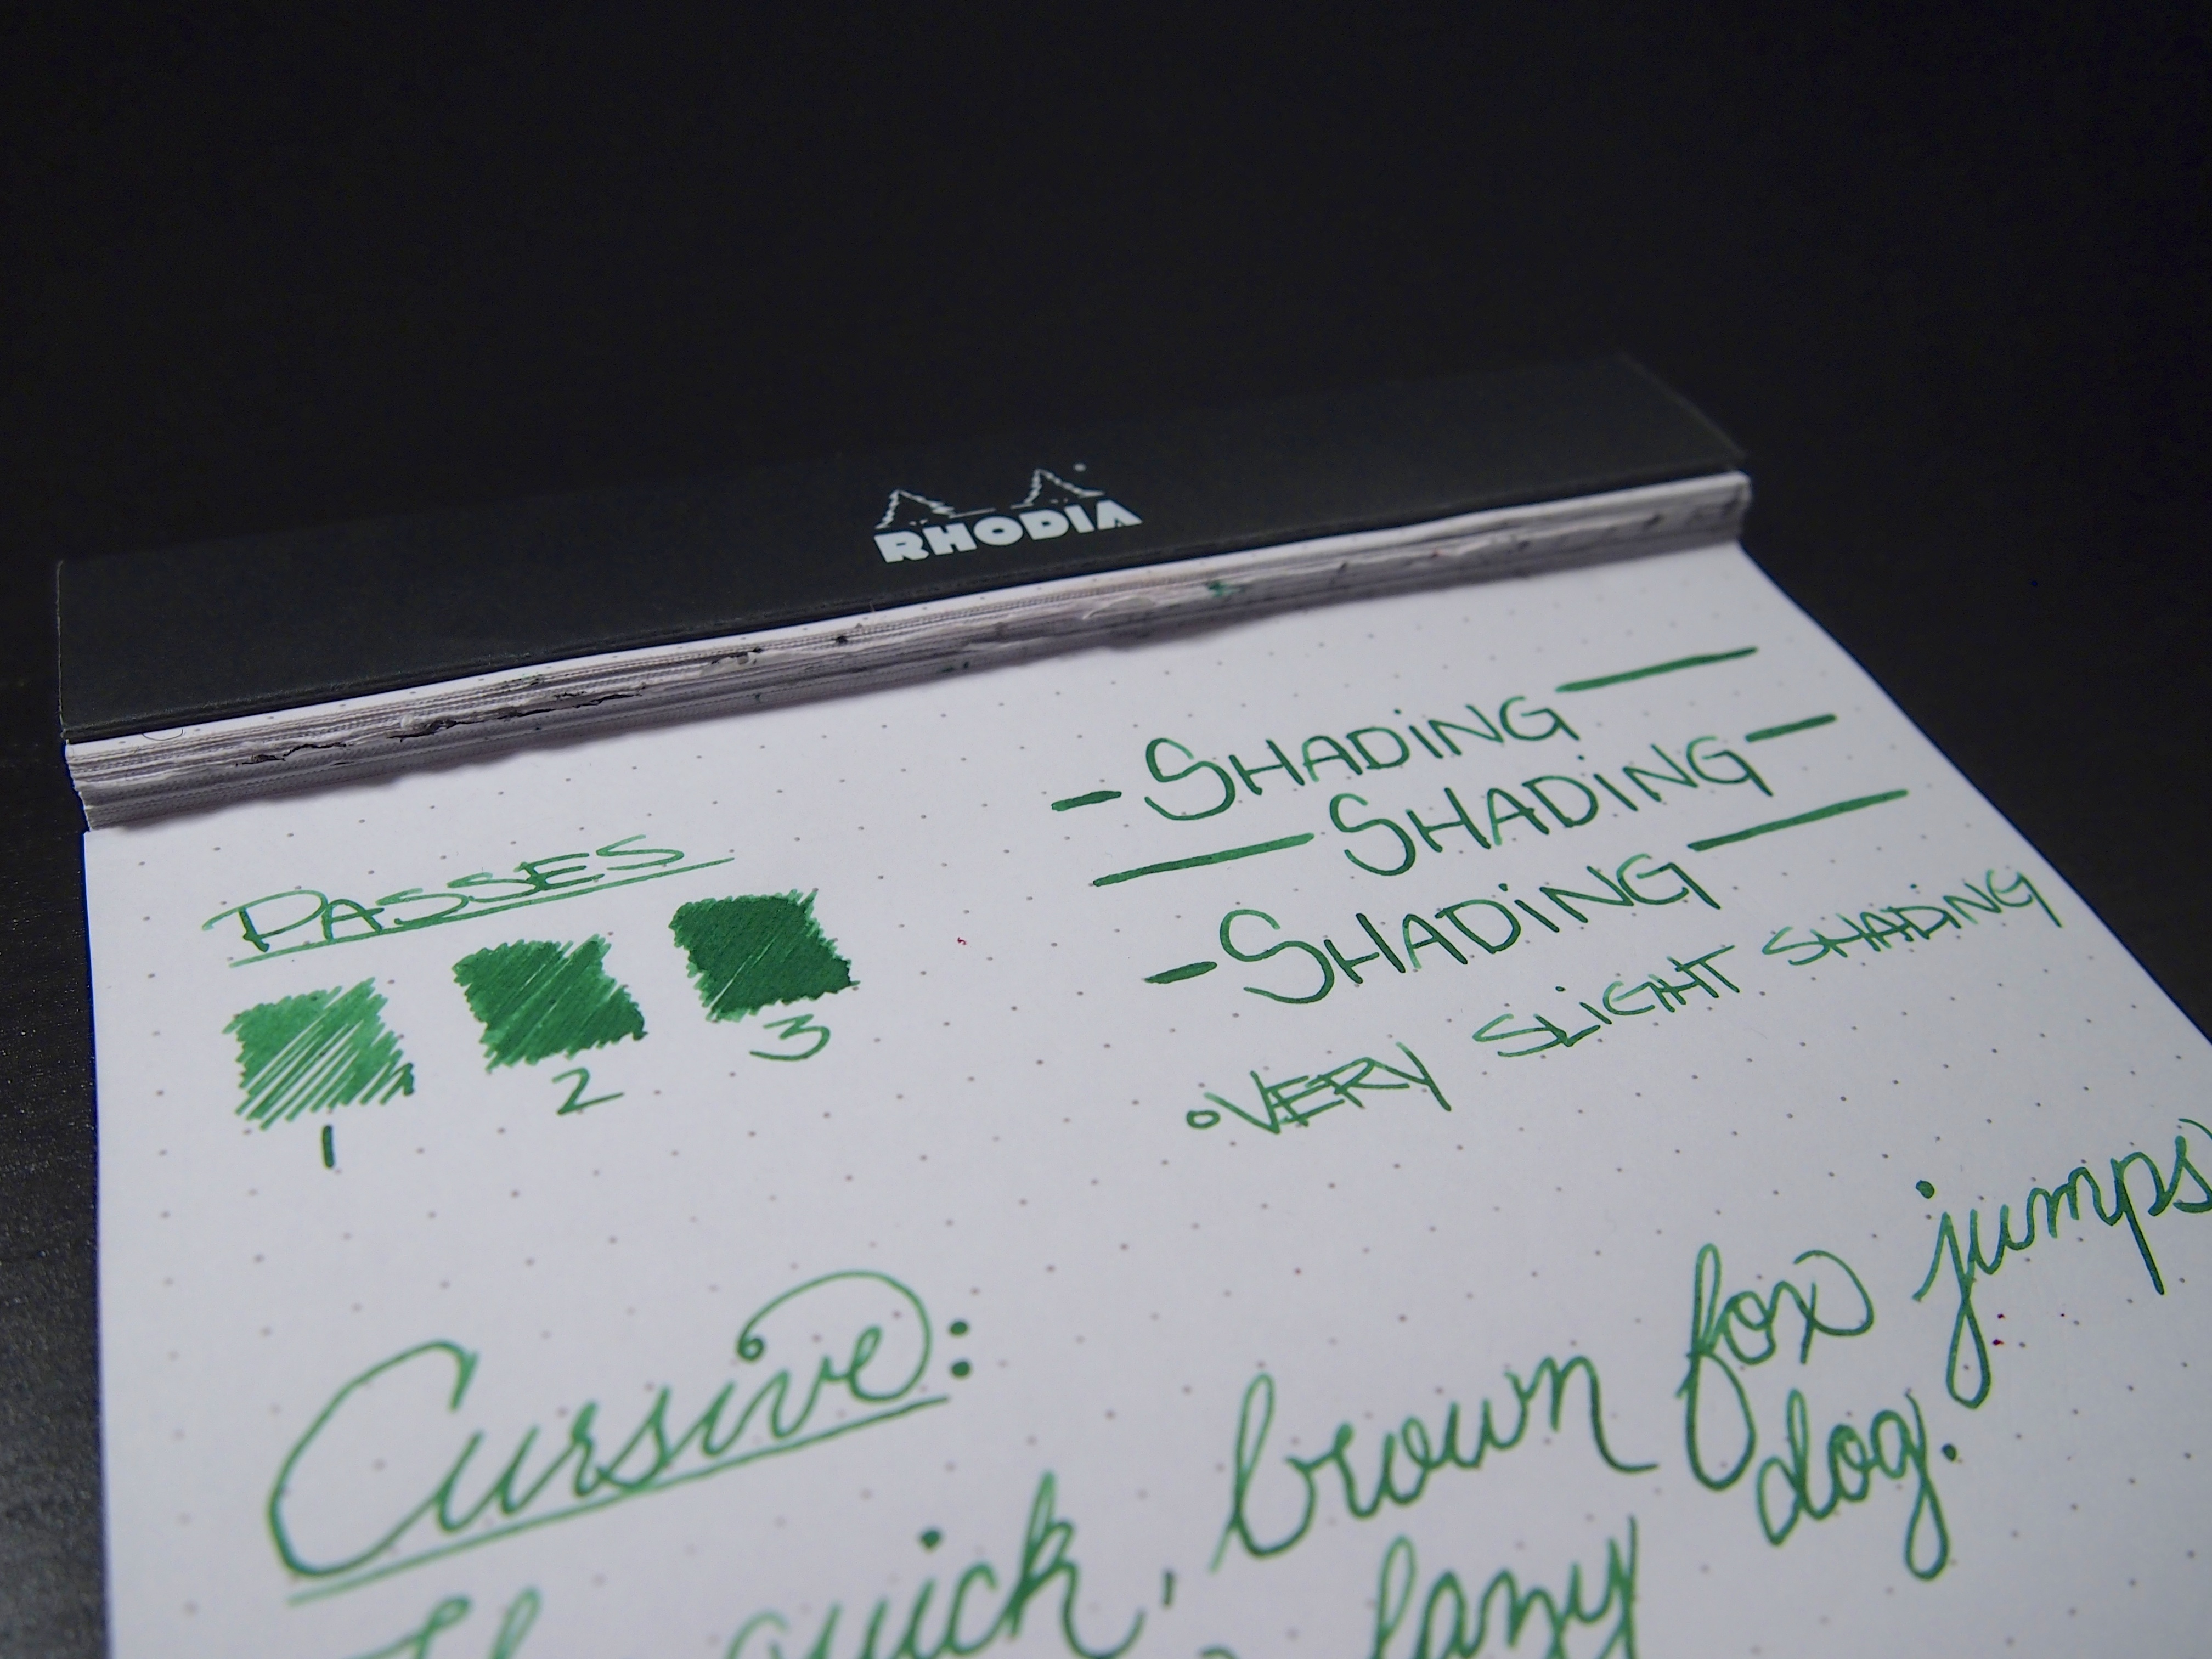 RHODIA
PASSES
1 2 3
- SHADiNG —
— SHADiNG -
- SHADiNG —
• VERY SLiGHT SHADiNG
Cursive:
quick, brown fox jumps
lazy dog.